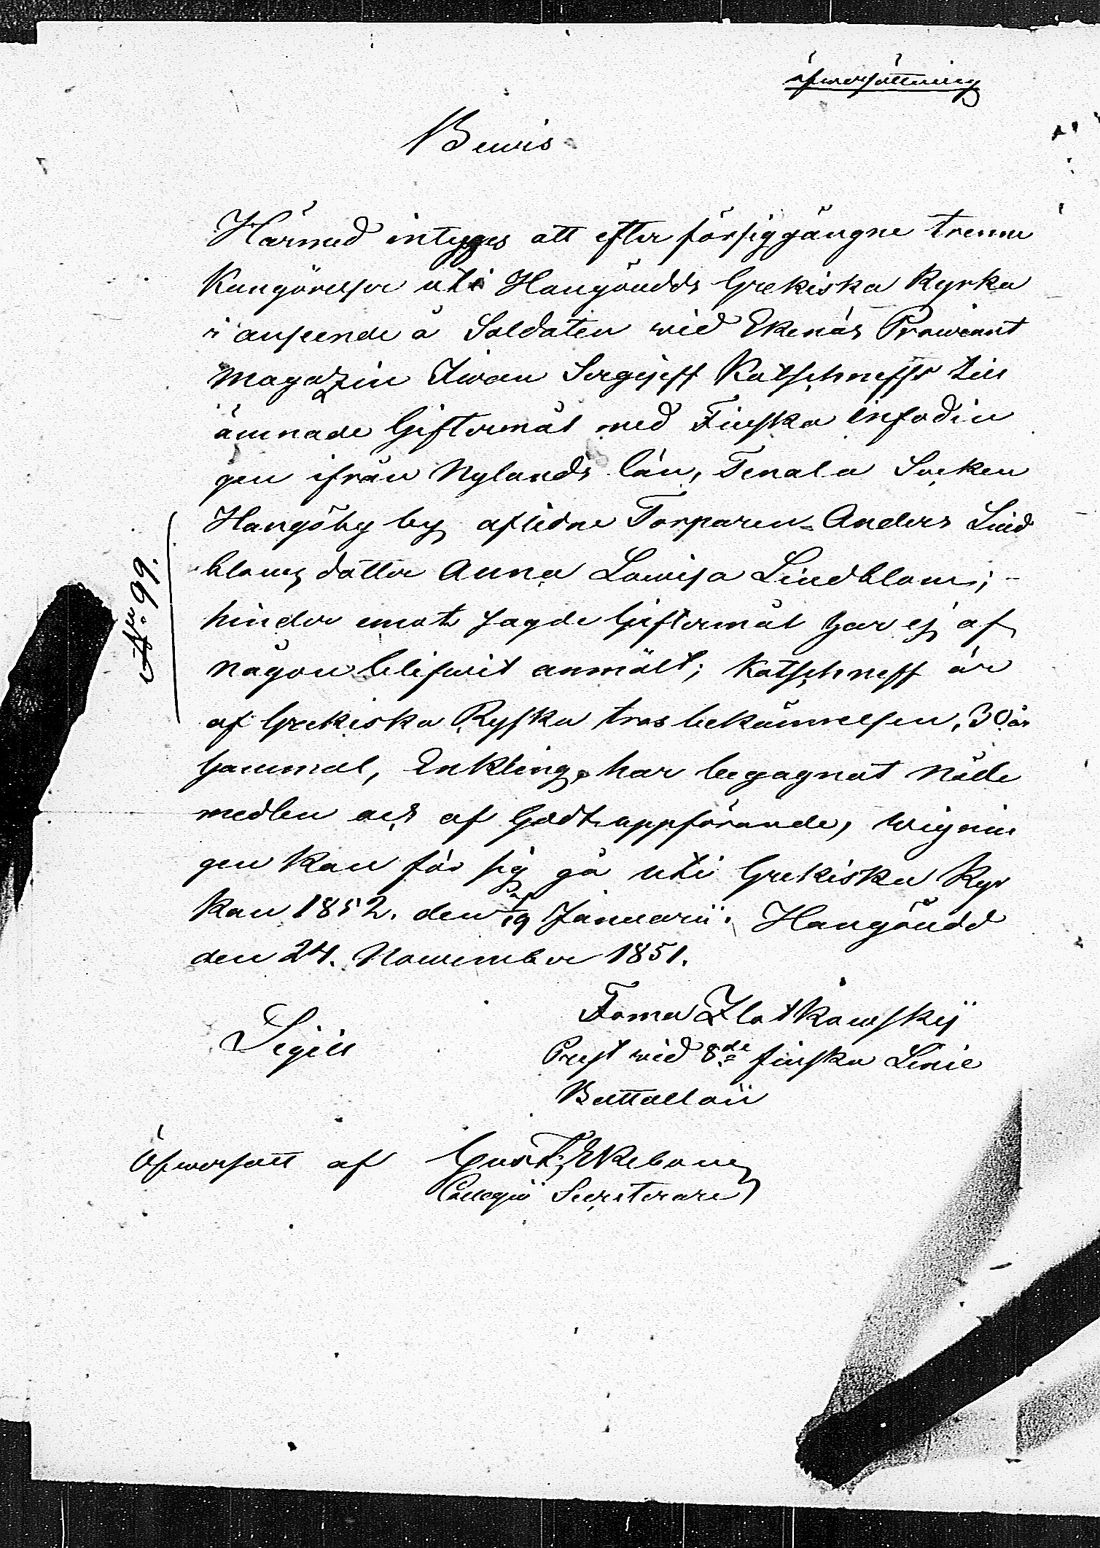 öfwersättning
Bewis
Härmed intyges att efter försiggångne trenne
Kungörelser uti Hangöudds Grekiska Kyrka
i anseende å Soldaten wid Ekenäs Prowiant
Magazin Iwan Sergejeff Katschneffs till
ämnade Giftermål med Finska infödin
gen ifrån Nylands län, Tenala Socken
Hangöby by, aflidne Torparen Anders Lind
bloms dotter Anna Lowisa Lindblom;
hinder emot sagde Giftermål har ej af
någon blifwit anmält; Katschneff är
af Grekiska Ryska trosbekännelsen, 30 år
gammal, Enkling, har begagnat Nåde
medlen och af Godt uppförande, wignin
gen kan för sig gå uti Grekiska Kyr
kan 1852. den 7/19 Januarii. Hangöudd
den 24. November 1851.
No 99.
Foma Zlatkowskij
Sigill
Prest wid 8de finska Linie
Battallon
Öfwersatt af Gust. Ekebom
Collegii Secreterare